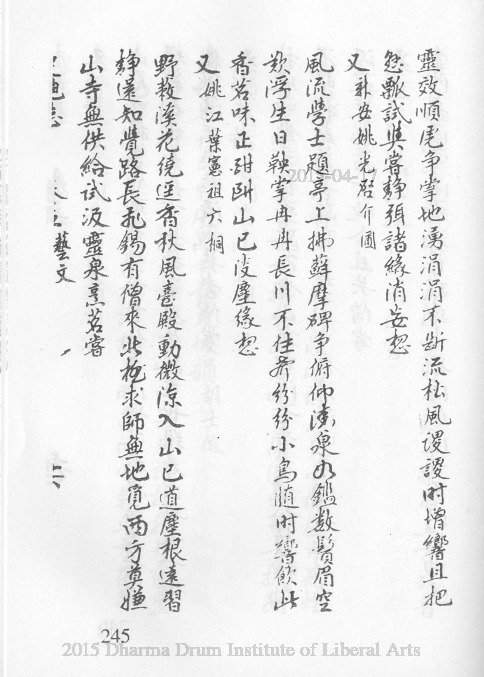 靈效順虎爭掌地湧涓涓不斷流松風謖謖時增響且把
怨瓢試與嘗靜弭諸緣消妄想
又 新安姚光啓介圖
風流學士題亭上拂蘚摩碑爭俯仰清泉如鑑數鬚眉空
歎浮生日鞅掌冉冉長川不住奔紛紛小鳥隨時嚮飲此
香茗味正甜酣山已沒塵緣想
又 姚江葉憲祖六桐
野救溪花繞逕香秋風臺殿動微涼入山已道塵根遠習
靜還知覺路長飛錫有僧來此抱求師無地覓西方莫嫌
山寺無供給試汲靈泉烹茗嘗
藝文
245
2015-04-
2015 Dharma Drum Institute of Liberal Arts